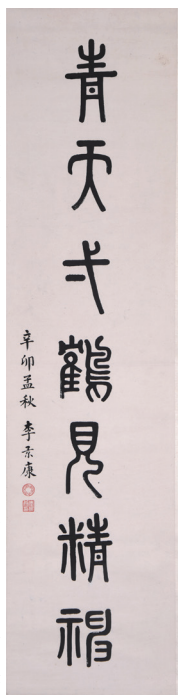 青天弌鶴見精神
辛卯孟秋 李景康